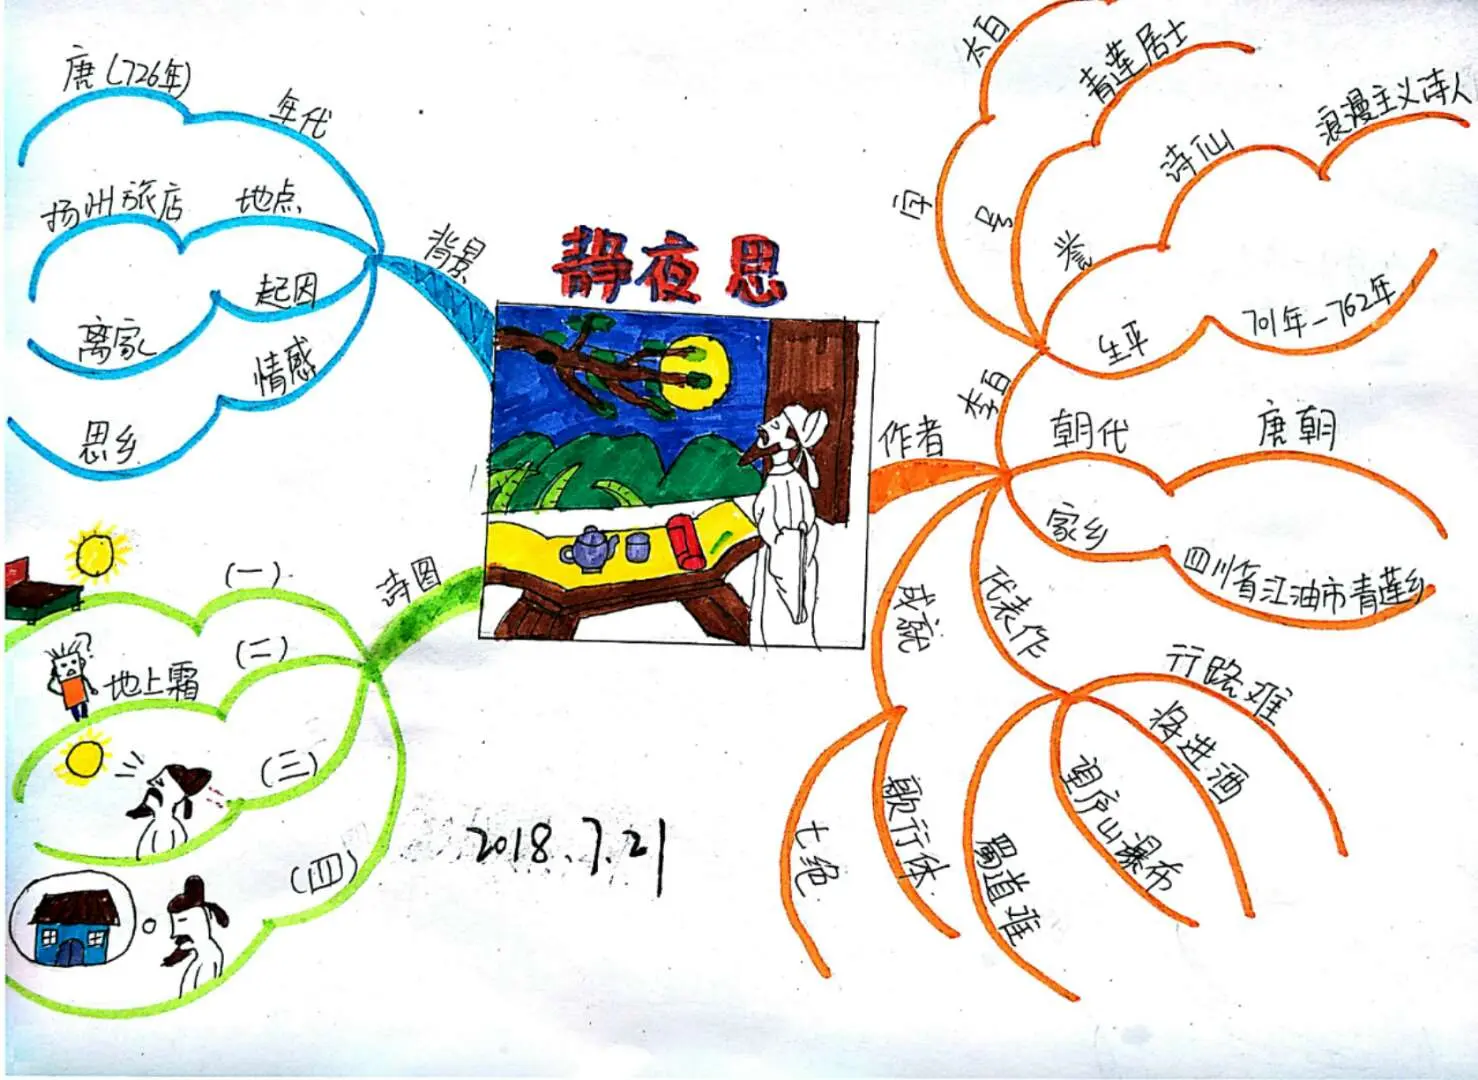 静夜思
背景
年代
唐(726年)
地点
扬州旅店
起因
离家
情感
思乡
诗图
(一)
(二)
?
地上霜
(三)
(四)
作者
李白
字
太白
号
青莲居士
誉
诗仙
浪漫主义诗人
生平
701年—762年
朝代
唐朝
家乡
四川省江油市青莲乡
代表作
行路难
将进酒
望庐山瀑布
蜀道难
成就
歌行体
七绝
2018.7.21